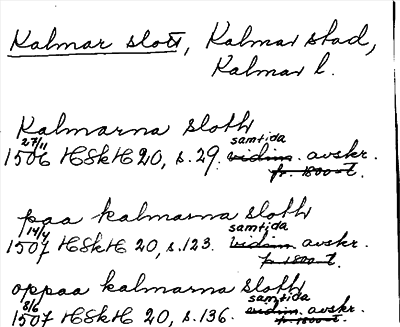 Kalmar slott, Kalmar stad,
Kalmar l.
Kalmarna sloth
27/11 samtida
1506 HSkH 20, s. 29. vidim. avskr.
fr. 1800-t.
paa kalmarna sloth
14/4 samtida
1507 HSkH 20, s. 123. vidim. avskr.
fr. 1800-t.
oppaa kalmarna sloth
8/6 samtida
1507 HSkH 20, s. 136. vidim. avskr.
fr. 1800-t.